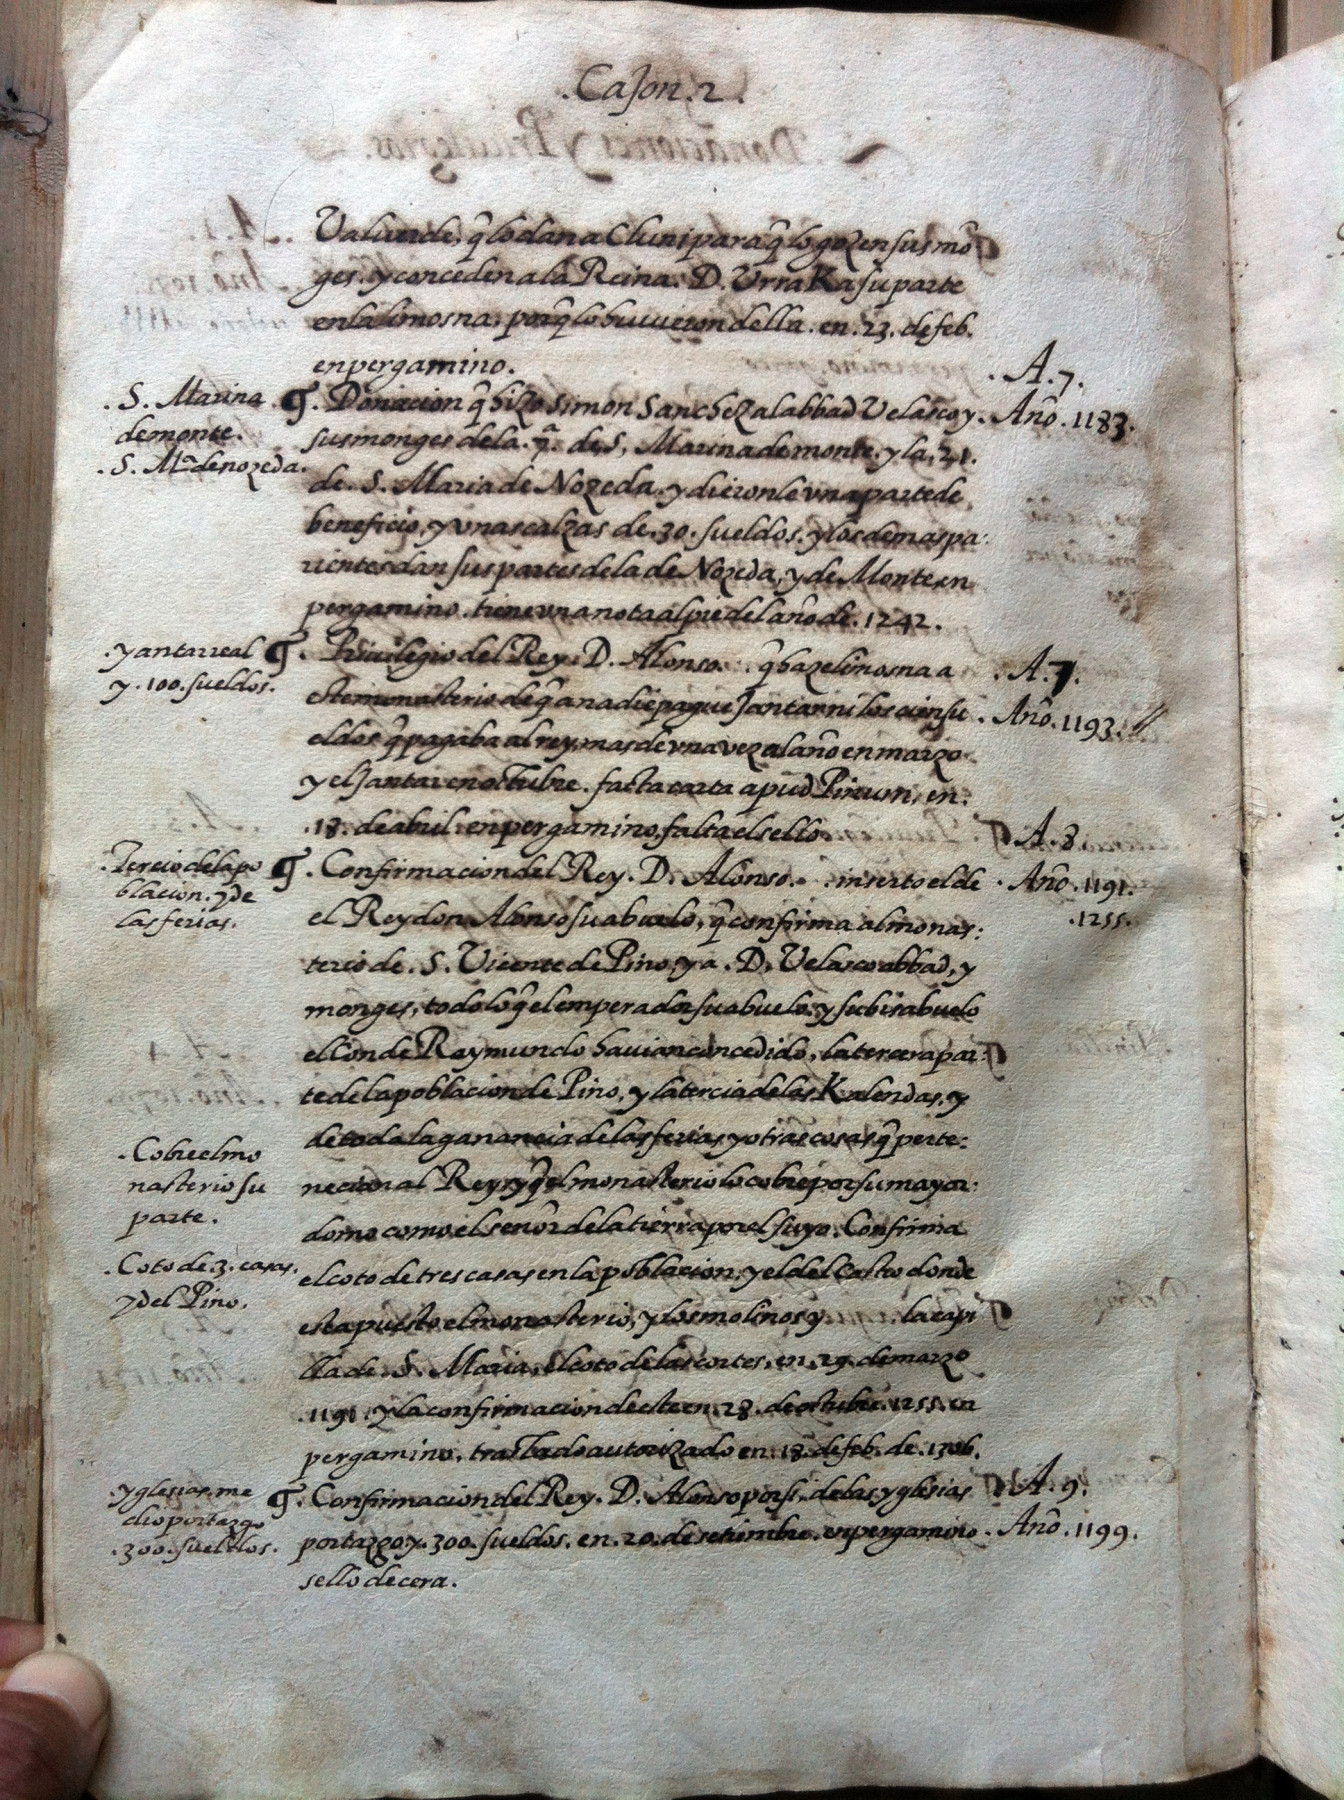 .Cajon.2.
Valverde, q̃ lo dan a Cluni para q̃ lo gozen sus mõ
ges. y conceden a la Reina. D. UrraKa su parte
en la limosna, porq̃ lo huvieron della. en. 23. de feb.
en pergamino.
.A.7.
.S. Marina
de monte.
.S. Mª de nozeda.
. Donacion q̃ hizo Simon Sanchez al abbad Velasco y
. Año. 1183.
sus monges de la. 7.ª de, S, Marina de monte. y la, 21.
de. S. Maria de Nozeda. y dieronle una parte de
beneficio, y unas calzas de. 30. sueldos. y los demas pa:
rientes dan sus partes de la de Nozeda, y de Monte en
pergamino. tiene una nota al pie del año de. 1242.
.yantar real
y. 100. sueldos.
. Privilegio del Rey. D. Alonso. . q̃ haze limosna a
.A.7.
este monasterio de q̃ a nadie pague Jantar ni los cien su
. Año. 1193.
eldos q̃ pagaba al rey, mas de una vez al año en marzo
y el Jantar en octubre. facta carta apud Pinum, en.
.18. de abril. en pergamino, falta el sello.
.A.8
.Tercio de la po
blacion. y de
las ferias.
. Confirmacion del Rey. D. Alonso. . inserto el de
. Año. 1191.
.1255.
el Rey don Alonso su abuelo, q̃ confirma al monas:
terio de. S. Vicente de Pino, y a. D. Velasco abbad, y
monges, todo lo q̃ el emperador su abuelo. y su bisabuelo
el conde Raymundo havian concedido, la tercera par:
te de la poblacion de Pino, y la tercia de las Kalendas, y
de toda la ganancia de las ferias y otras cosas q̃ perte:
.Cobre el mo
nasterio su
parte.
necian al Rey, y q̃ el monasterio lo cobre por su mayor:
domo como el señor de la tierra por el suyo. Confirma
.Coto de. 3. casas.
y del Pino.
el coto de tres casas en la poblacion. y el del Castro donde
esta puesto el monasterio, y los molinos y la capi
lla de. S. Maria, el coto de las cortes, en, 29. de marzo
.1191. y la confirmacion de este en. 28. de octubre. 1255. en
pergamino. trasladado autorizado en. 18. de feb. de. 1306.
.yglesias. me
dio portazgo
.300. sueldos.
. Confirmacion del Rey. D. Alonso por si, de las yglesias
.A.9.
portazgo y. 300. sueldos. en. 20. de setiembre. en pergamino
. Año. 1199.
sello de cera.